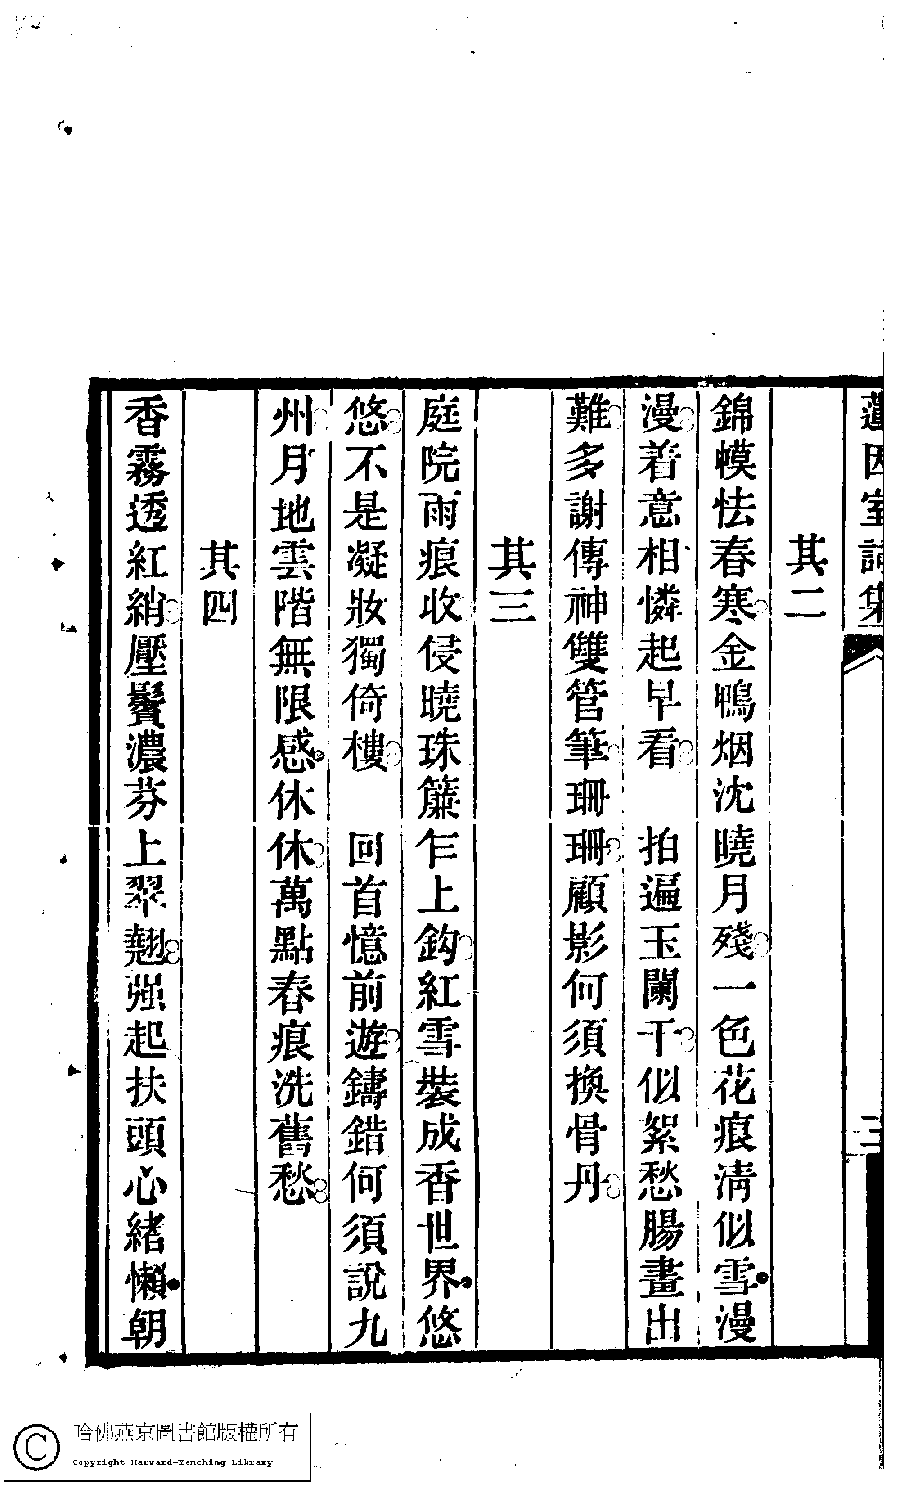 蓮因室詩集 三
其二
錦幙怯春寒金鴨烟沈曉月殘一色花痕淸似雪漫
漫着意相憐起早看 拍遍玉闌干似絮愁腸畫出
難多謝傳神雙管筆珊珊顧影何須換骨丹
其三
庭院雨痕收侵曉珠簾乍上鈎紅雪裝成香世界悠
悠不是凝妝獨倚樓 回首憶前遊鑄錯何須說九
州月地雲階無限感休休萬點春痕洗舊愁
其四
香霧透紅綃壓鬢濃芬上翠翹强起扶頭心緒懶朝
哈佛燕京圖書館版權所有
Copyright Harvard-Yenching Library